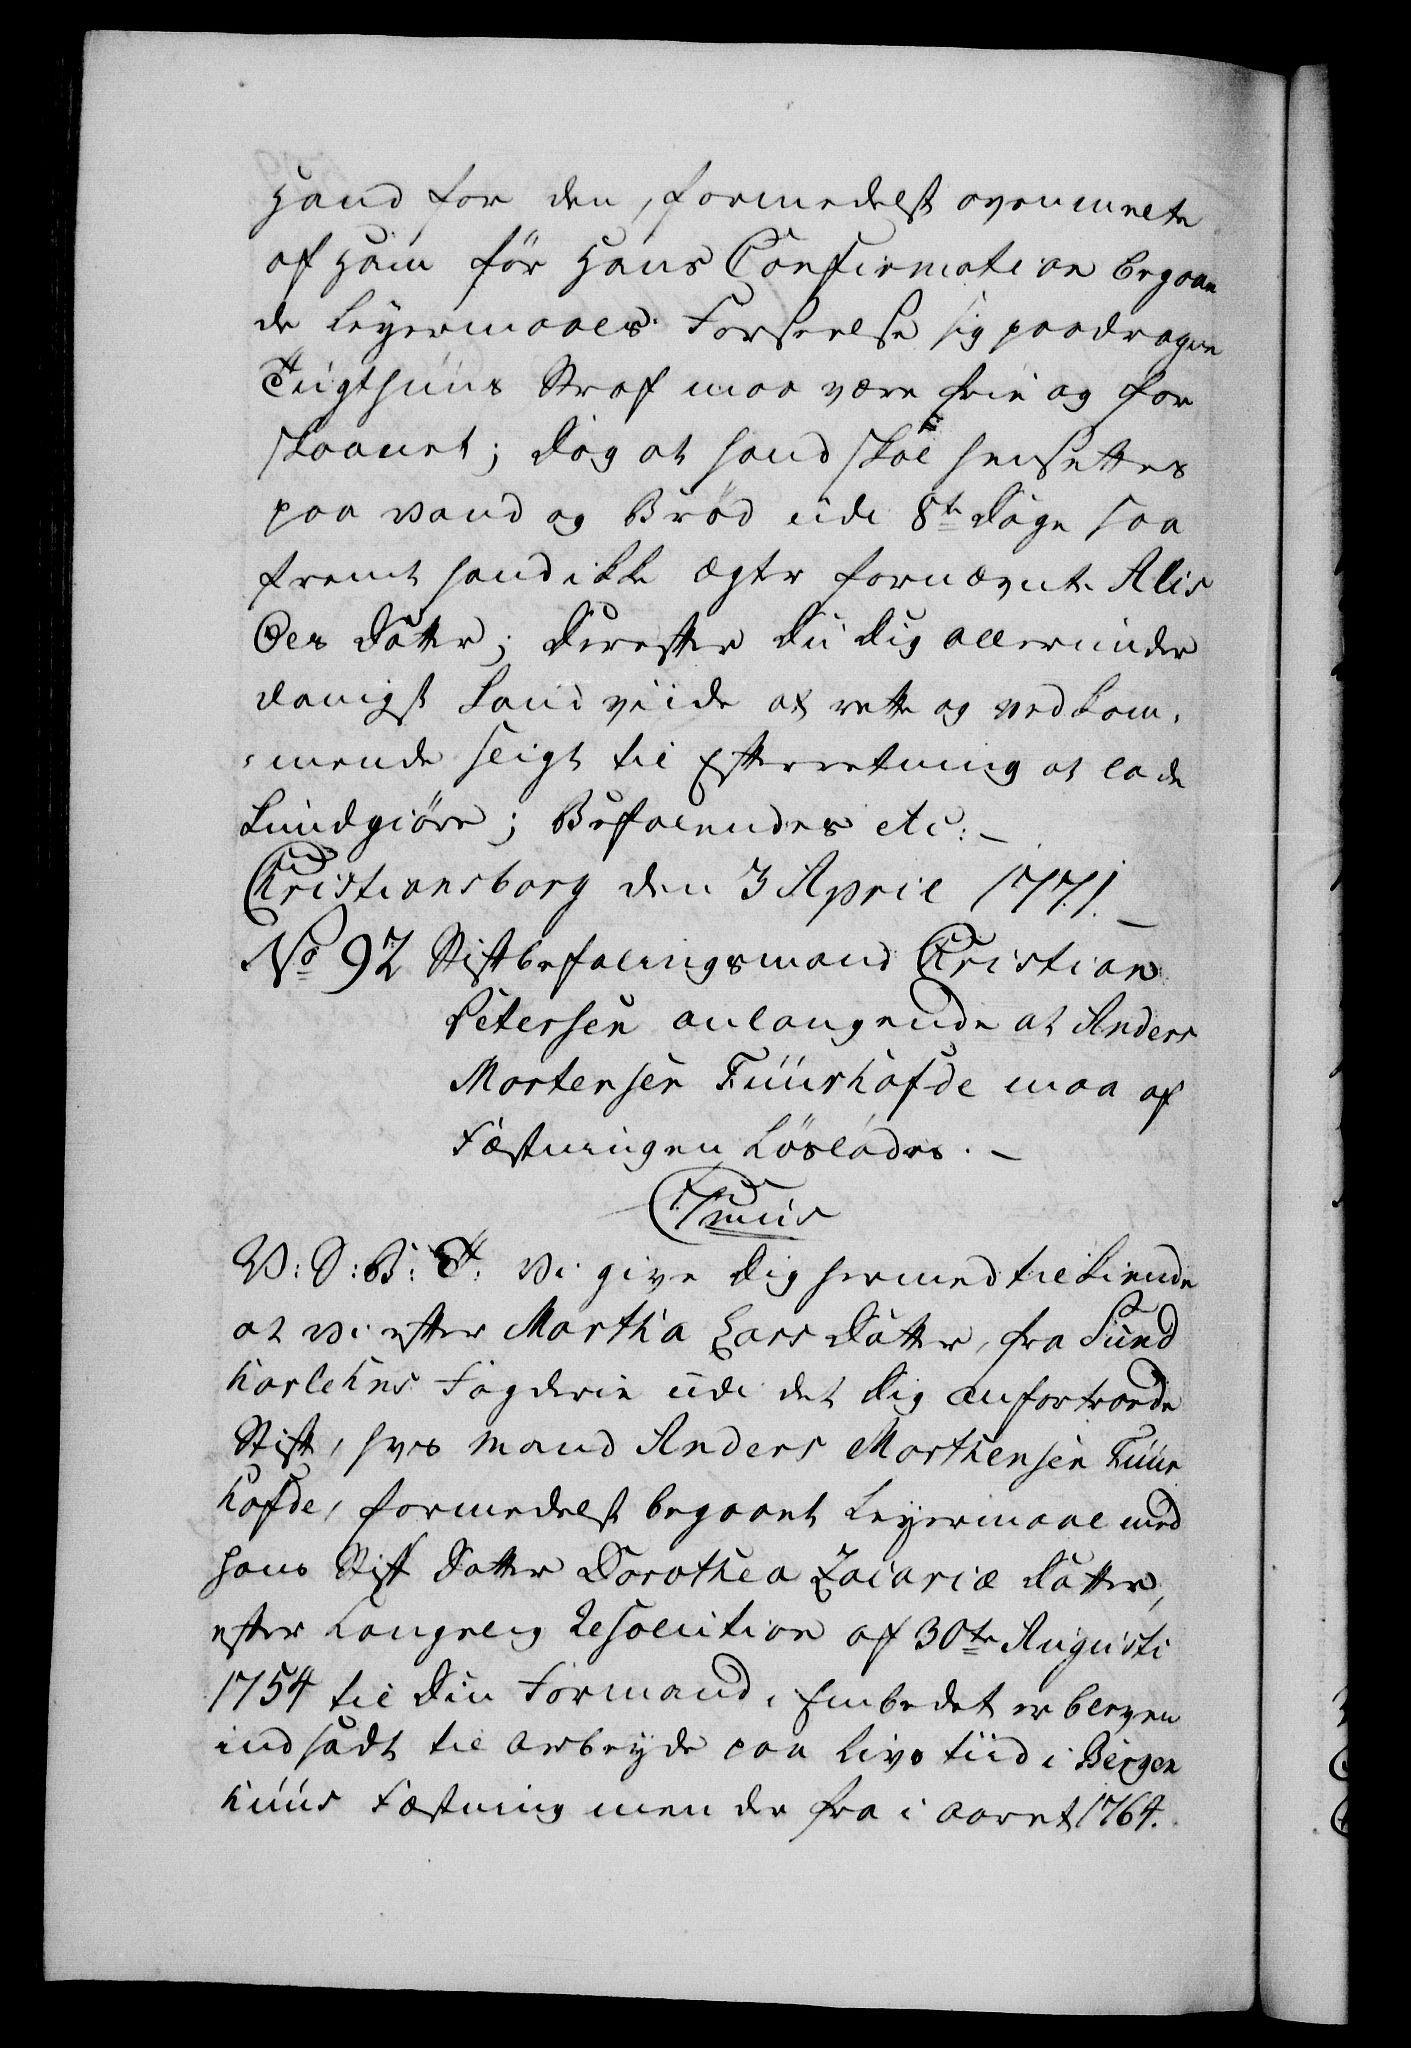 Hand for den, formedelst ovenmelte
af Ham för Hans Confirmation begaae
de Leyermaals Forseelse sig paadragne
Tugthuus Straf maa være frie og for
skaanet; Dog at hand skal hensettes
paa Vand og Bröd udi 8te Dage saa
fremt hand ikke ægter fornævnte Alis
Oles Datter; Derefter Du dig allerunder
danigst hand viide at rette og vedkom,
mende sligt til Efterretning at lade
kundgiöre; Befalendes etc:
Christiansborg den 3 April 1771.
No 92 Stiftbefalingsmand Christian
Petersen anlangende at Anders
Mortensen Fuurhofde maa af
Fæstningen Löslades.
Chr: 7mus
V: S: B: T: Vi give Dig hermed tilkiende
at vi efter Martha Lars Datter, fra Sund
horlehns Fogderie udi det dig anfortroede
Stift, hvis Mand Anders Morthensen Fuur
hofde, formedelst begaaet Leyermaal med
hans Stif Datter Dorothea Zacariæ Datter,
efter kongelig Resolution af 30te Augusti
1754 til Din Formand i Embedet er bleven
indsadt til Arbeyde paa Livs tiid i Bergen
huus Fæstning men der fra i Aaret 1764.